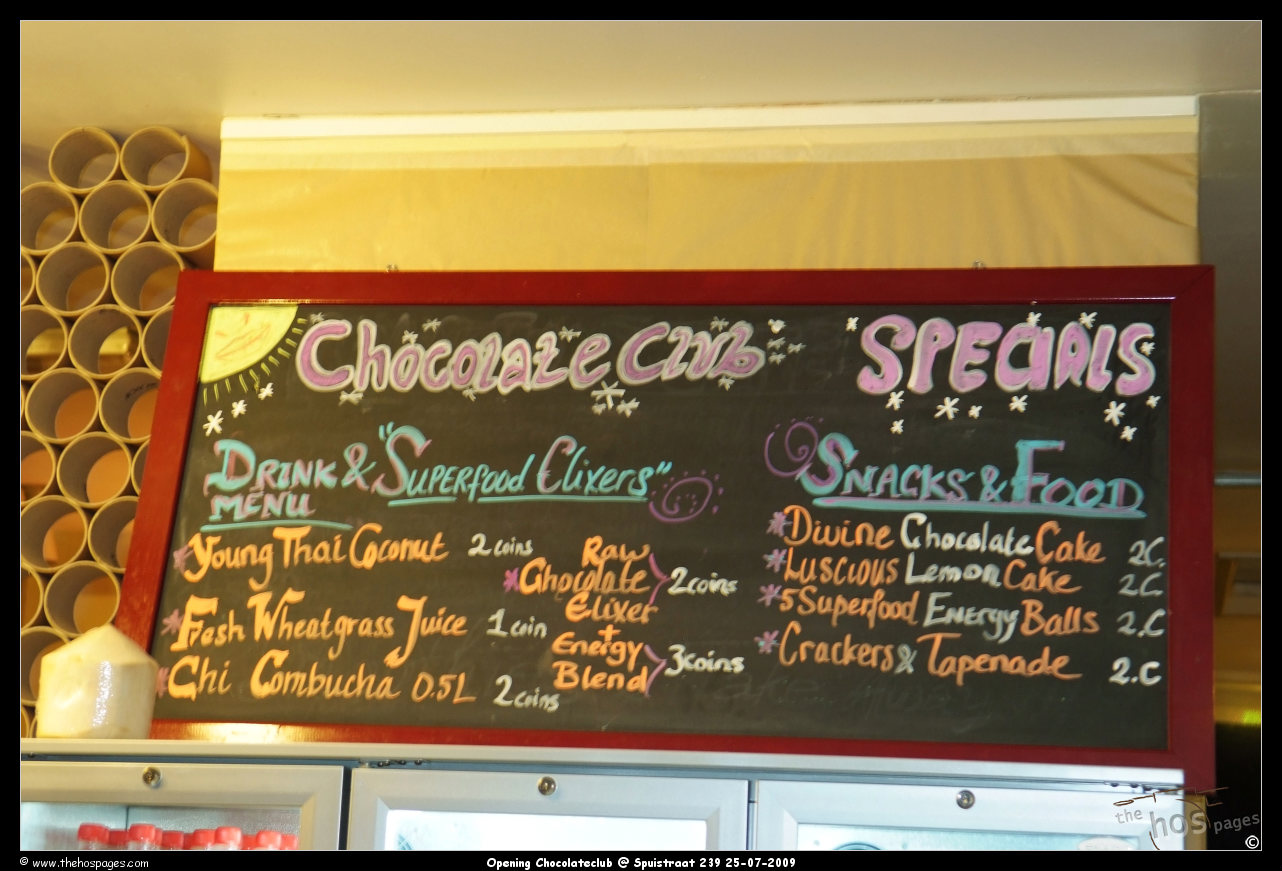 Chocolate Club
SPECIALS
DRINK & "SUPERFOOD Elixers"
MENU
Young Thai Coconut 2 coins
Fresh Wheatgrass Juice 1 coin
Chi Combucha 0.5L 2 coins
Raw
Chocolate 2 coins
Elixer
+
Energy 3 coins
Blend
SNACKS & FOOD
Divine Chocolate Cake 2C.
Luscious Lemon Cake 2C
5 Superfood Energy Balls 2.C
Crackers & Tapenade 2.C
the hos pages
©
© www.thehospages.com
Opening Chocolateclub @ Spuistraat 239 25-07-2009